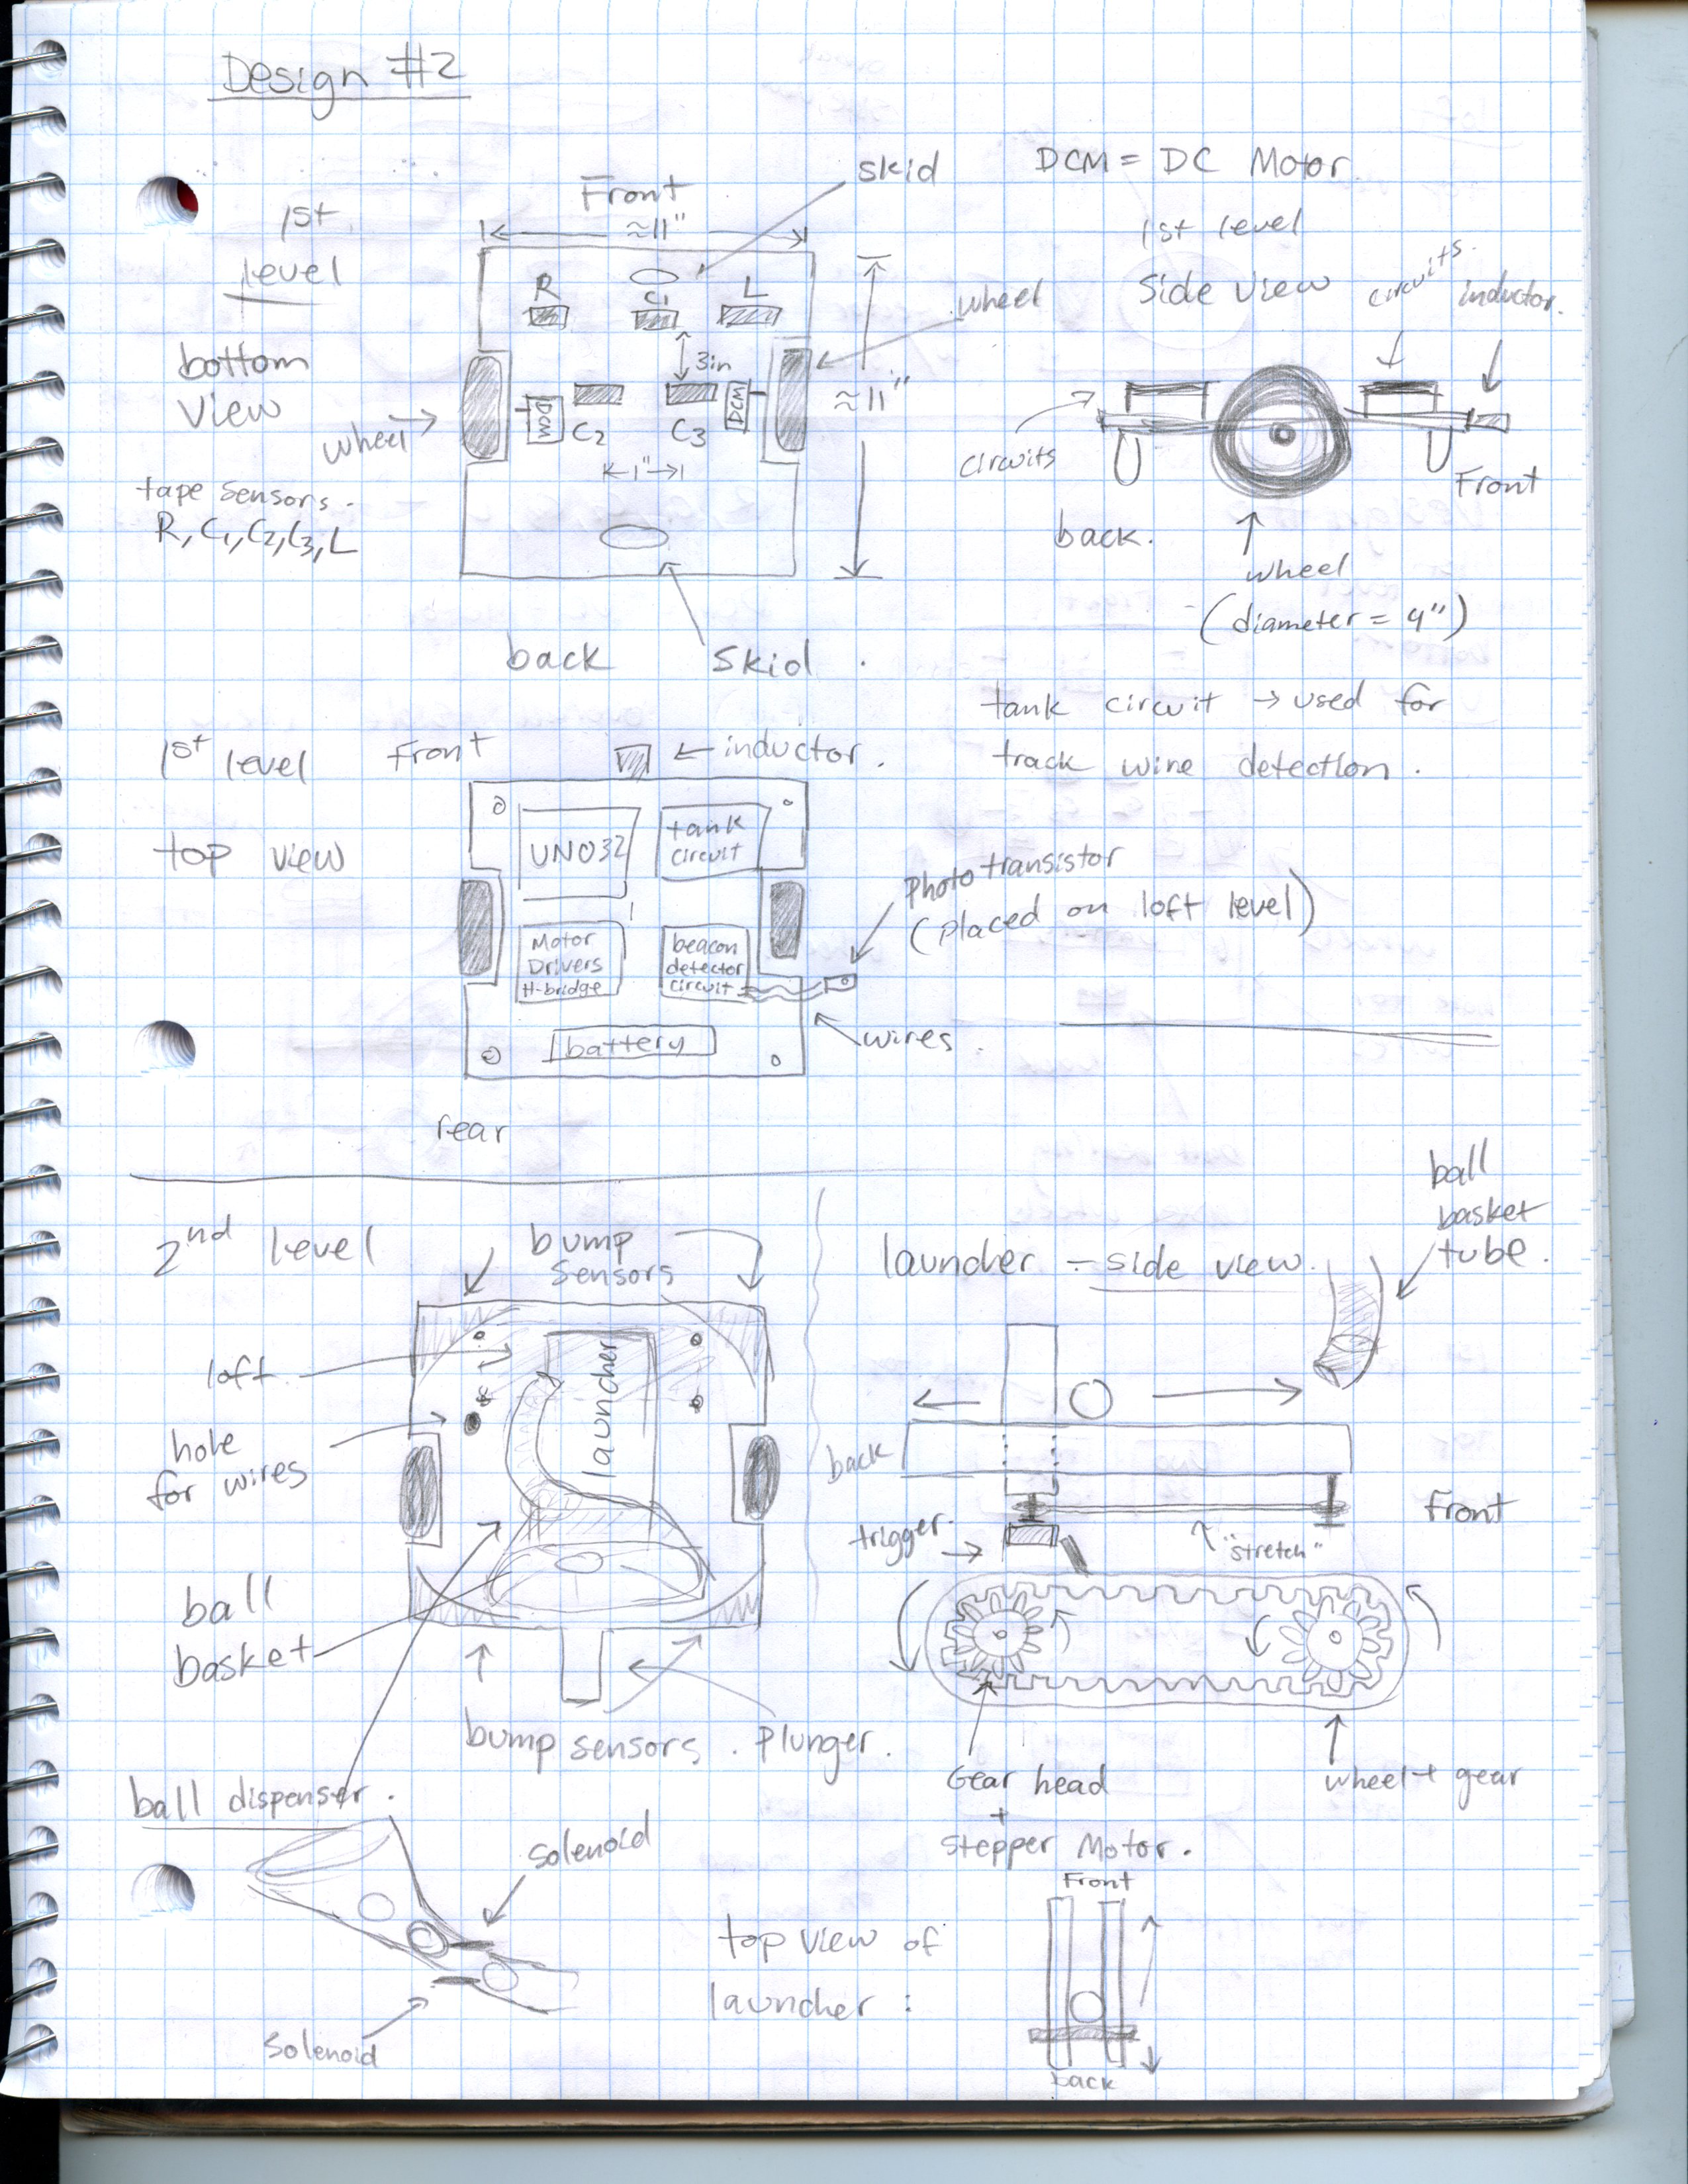 Design #2
1st
level
Front
≈11"
skid
R
C1
L
wheel
3in
≈11"
DCM
C2
C3
DCM
←1"→
bottom
view
wheel
tape sensors.
R, C1, C2, C3, L
back
skid
DCM = DC Motor.
1st level
Side view
circuits.
inductor.
circuits
Front
back.
wheel
(diameter = 4")
tank circuit → used for
track wire detection.
1st level
Front
← inductor.
top view
UNO32
tank
circuit
Motor
Drivers
H-bridge
beacon
detector
circuit
battery
Photo transistor
(placed on loft level)
wires.
rear
2nd level
bump
sensors
loft
launcher
hole
for wires
ball
basket
bump sensors.
Plunger.
launcher - side view.
ball
basket
tube.
back
Front
trigger.
"stretch"
Gear head
+
Stepper Motor.
wheel + gear
ball dispenser.
solenoid
solenoid
top view of
launcher:
Front
back